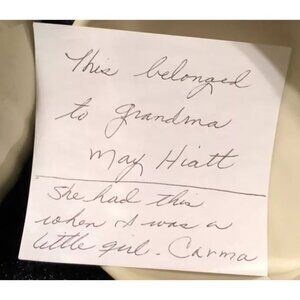 This belonged
to Grandma
May Hiatt
She had this
when I was a
little girl. Carma